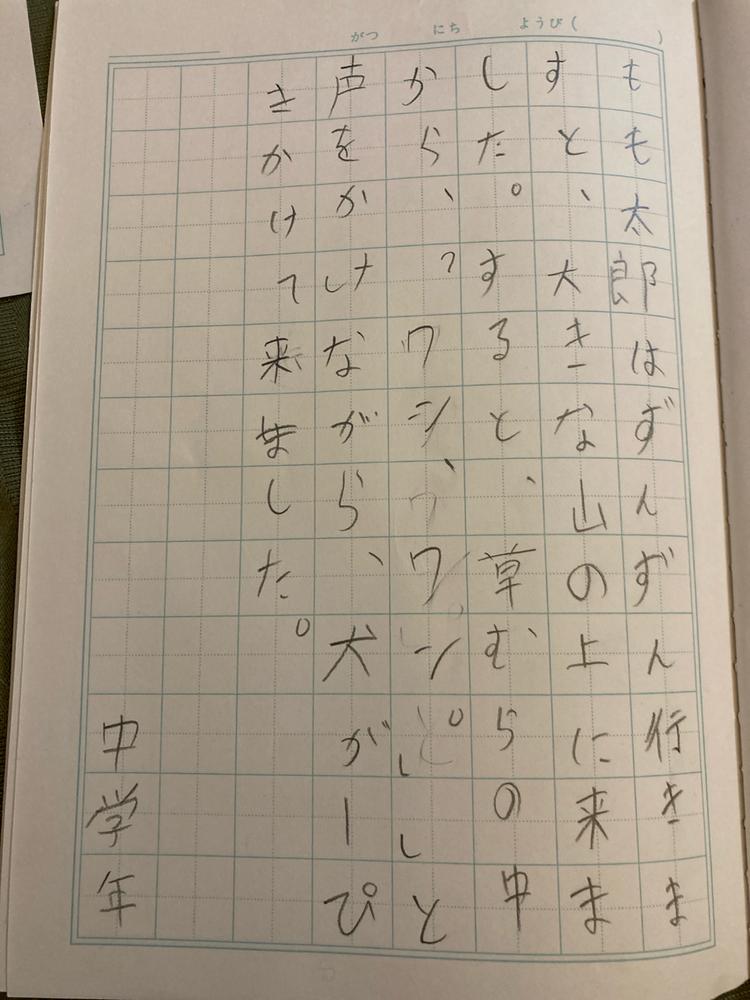 がつ　にち　ようび（　）
もも太郎はずんずん行きま
すと、大きな山の上に来ま
した。すると、草むらの中
から、「ワン、ワン。」と
声をかけながら、犬が一ぴ
きかけて来ました。
中学年